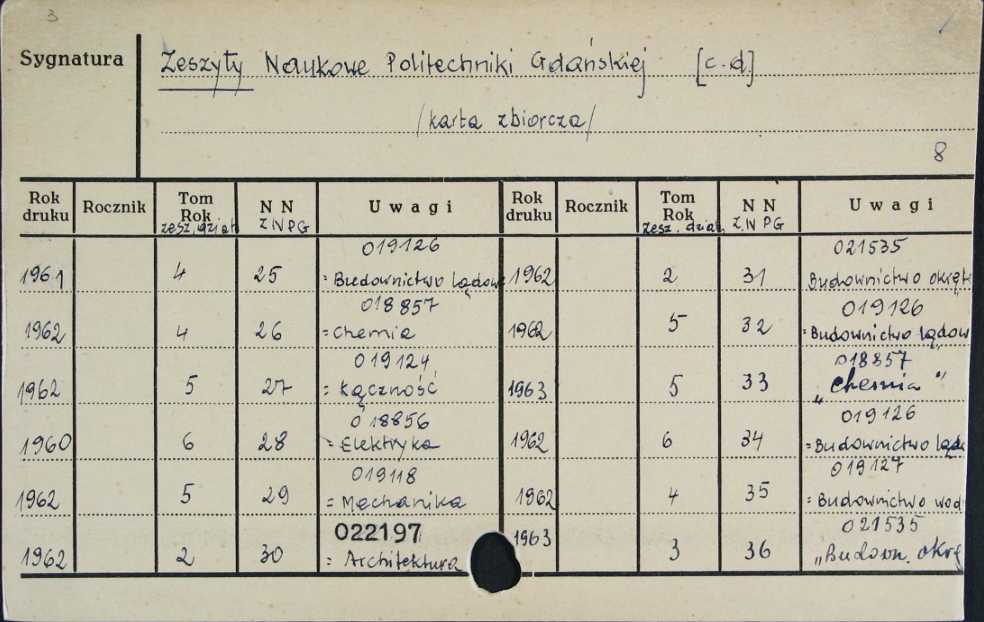 3
Sygnatura Zeszyty Naukowe Politechniki Gdańskiej [c.d.]
/karta zbiorcza/
8
Rok druku Rocznik Tom Rok zesz. dział N N Z N PG Uwagi Rok druku Rocznik Tom Rok zesz. dział N N Z. N PG Uwagi
019126 021535
1961 4 25 = Budownictwo lądowe 1962 2 31 Budownictwo okręt
018857 019126
1962 4 26 = Chemia 1962 5 32 = Budownictwo lądow
019124 018857
1962 5 27 = Łączność 1963 5 33 „Chemia"
018856 019126
1960 6 28 = Elektryka 1962 6 34 = Budownictwo ląd
019118 019127
1962 5 29 = Mechanika 1962 4 35 = Budownictwo wod
022197 021535
1962 2 30 = Architektura 1963 3 36 „Budown. okrę